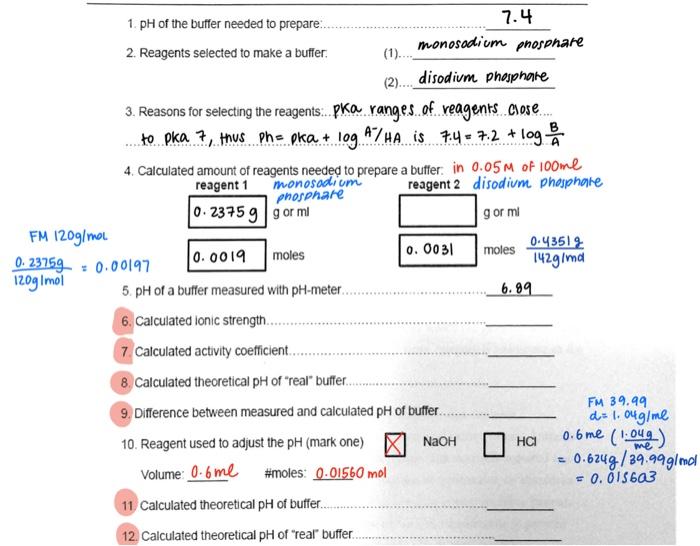 1. pH of the buffer needed to prepare: 7.4
2. Reagents selected to make a buffer: (1).... monosodium phosphate
(2).... disodium phosphate
3. Reasons for selecting the reagents: pKa ranges of reagents close
to pka 7, thus Ph = pka + log A⁻/HA is 7.4 = 7.2 + log B/A
4. Calculated amount of reagents needed to prepare a buffer: in 0.05 M of 100ml
reagent 1 monosodium phosphate reagent 2 disodium phosphate
0.2375 g g or ml g or ml
FM 120g/mol
0.2375g / 120g/mol = 0.00197
0.0019 moles 0.0031 moles 0.4351g / 142g/mol
5. pH of a buffer measured with pH-meter 6.89
6. Calculated ionic strength
7. Calculated activity coefficient
8. Calculated theoretical pH of "real" buffer
9. Difference between measured and calculated pH of buffer
10. Reagent used to adjust the pH (mark one) NaOH HCl
Volume: 0.6ml #moles: 0.01560 mol
FM 39.99
d = 1.04g/ml
0.6ml (1.04g / ml)
= 0.624g / 39.99g/mol
= 0.015603
11. Calculated theoretical pH of buffer
12. Calculated theoretical pH of "real" buffer